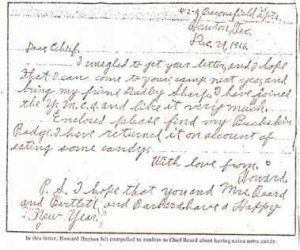 #2-J Beaconsfield Apts
Houston, Tex.
Dec. 28, 1916
Dear Chief:
I was glad to get your letter, and I hope
that I can come to your camp next year, and
bring my friend Dudley Sharp. I have joined
the Y.M.C.A and like it very much.
Enclosed please find my Buckskin
Badge. I have returned it on account of
eating some candy.
With love from,
Howard.
P.S. I hope that you and Mrs. Beard
and Bartlett and Barbara have a Happy
New Year."
In this letter, Howard Hughes felt compelled to confess to Chief Beard about having eaten some candy.